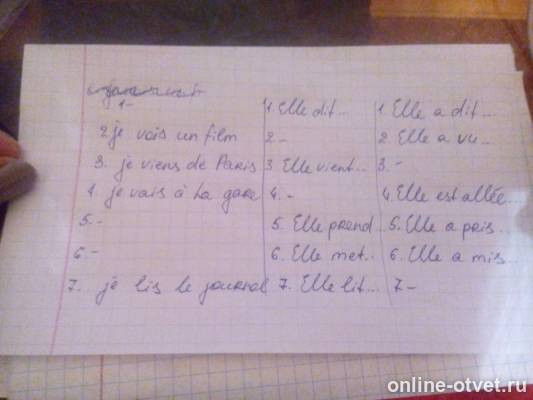 1-
2. je vois un film
3. je viens de Paris
4. je vais à la gare
5.-
6.-
7. je lis le journal
1. Elle dit...
2.-
3. Elle vient...
4.-
5. Elle prend...
6. Elle met...
7. Elle lit...
1. Elle a dit...
2. Elle a vu...
3.-
4. Elle est allée...
5. Elle a pris...
6. Elle a mis...
7-
online-otvet.ru